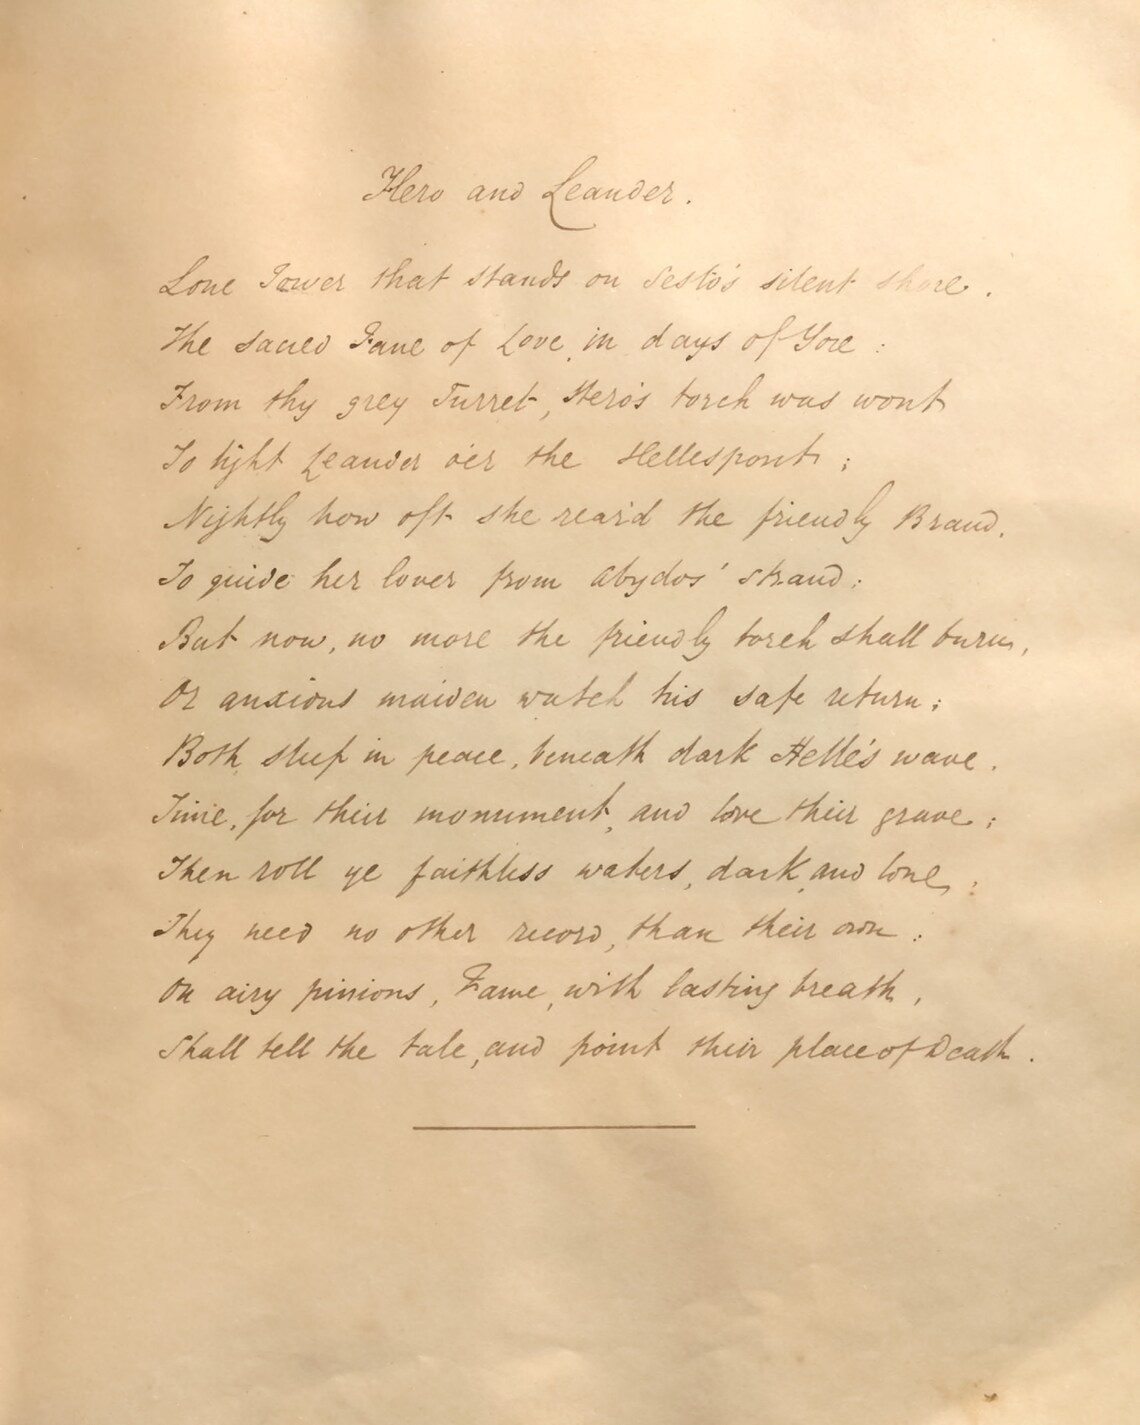 Hero and Leander.
Lone Tower that stands on Sesto's silent shore.
The sacred Fane of Love, in days of Yore :
From thy grey Turret, Hero's torch was wont
To light Leander o'er the Hellespont ;
Nightly how oft she rear'd the friendly Brand,
To guide her lover from Abydos' strand :
But now, no more the friendly torch shall burn,
Or anxious maiden watch his safe return ;
Both sleep in peace, beneath dark Helle's wave .
Time, for their monument, and love their grave ;
Then roll ye faithless waters, dark, and lone, ;
They need no other record, than their own :
On airy pinions, Fame, with lasting breath,
Shall tell the tale, and point their place of Death .